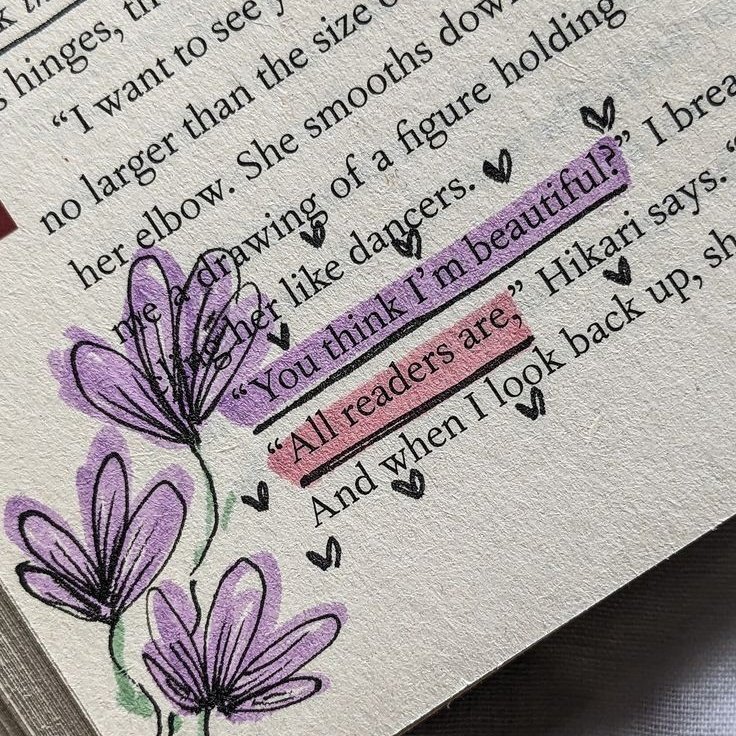 hinges,
“I want to see
no larger than the size
her elbow. She smooths down
me a drawing of a figure holding
cling her like dancers.
“You think I’m beautiful?” I brea
“All readers are,” Hikari says. “
And when I look back up, sh